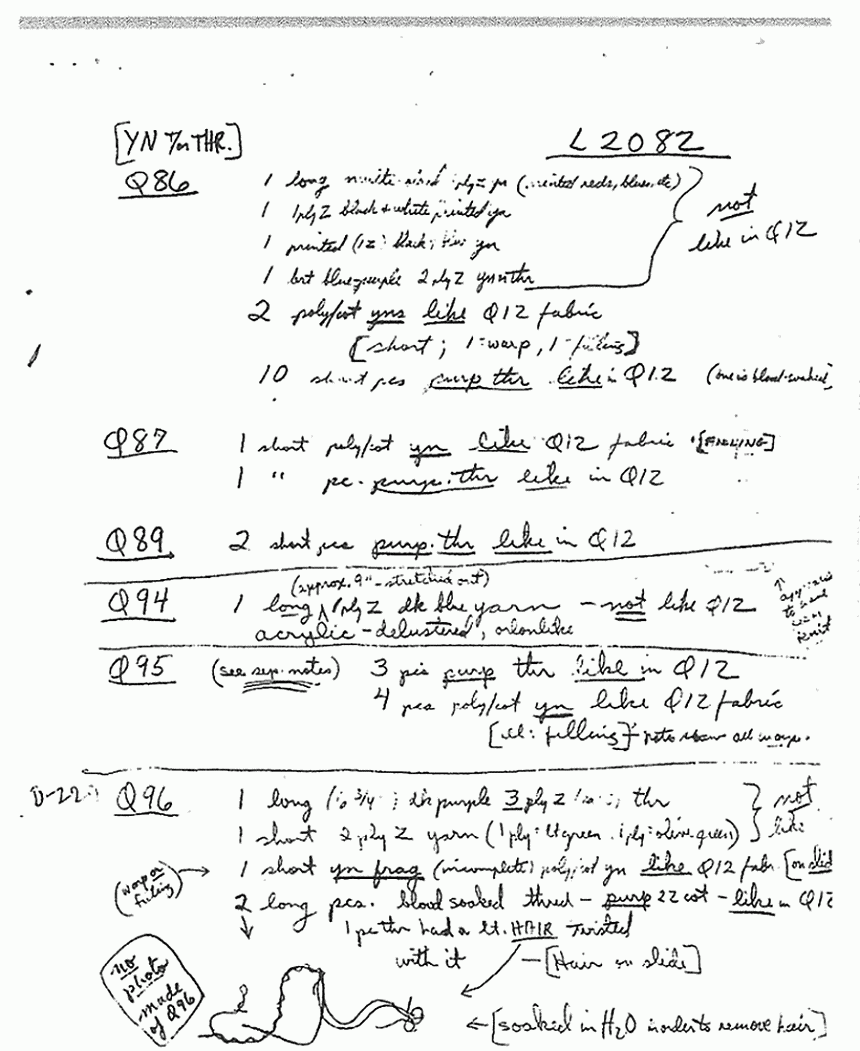 [YN &/or THR.] L2082
Q86 1 long 1 ply Z (printed reds, blues, etc)
1 1 ply Z black + white printed yn not
1 printed black, yn like in Q12
1 brt blue-purple 2 ply Z yn or thr
2 poly/cot yns like Q12 fabric
[short; 1=warp, 1=filling]
10 short pcs purp thr like in Q12 (one is blood-soaked)
Q87 1 short poly/cot yn like Q12 fabric [FILLING]
1 " pc. purp. thr like in Q12
Q89 2 short pcs purp. thr like in Q12
(approx. 9" - stretched out)
Q94 1 long 1 ply Z dk blue yarn - not like Q12
acrylic - delustered, orlonlike
Q95 (see sep. notes) 3 pcs purp thr like in Q12
4 pcs poly/cot yn like Q12 fabric
[all: filling]
Q96 1 long dk purple 3 ply Z thr not
1 short 2 ply Z yarn (1 ply: lt green 1 ply: olive green) like
(warp or filling) → 1 short yn frag (incomplete) poly/cot yn like Q12 fabr. [on slide
2 long pcs. blood soaked thread - purp 2Z cot - like in Q12
1 pc thr had a lt. HAIR twisted
with it - [Hair on slide]
no
photo
made
of Q96
← [soaked in H2O in order to remove hair]